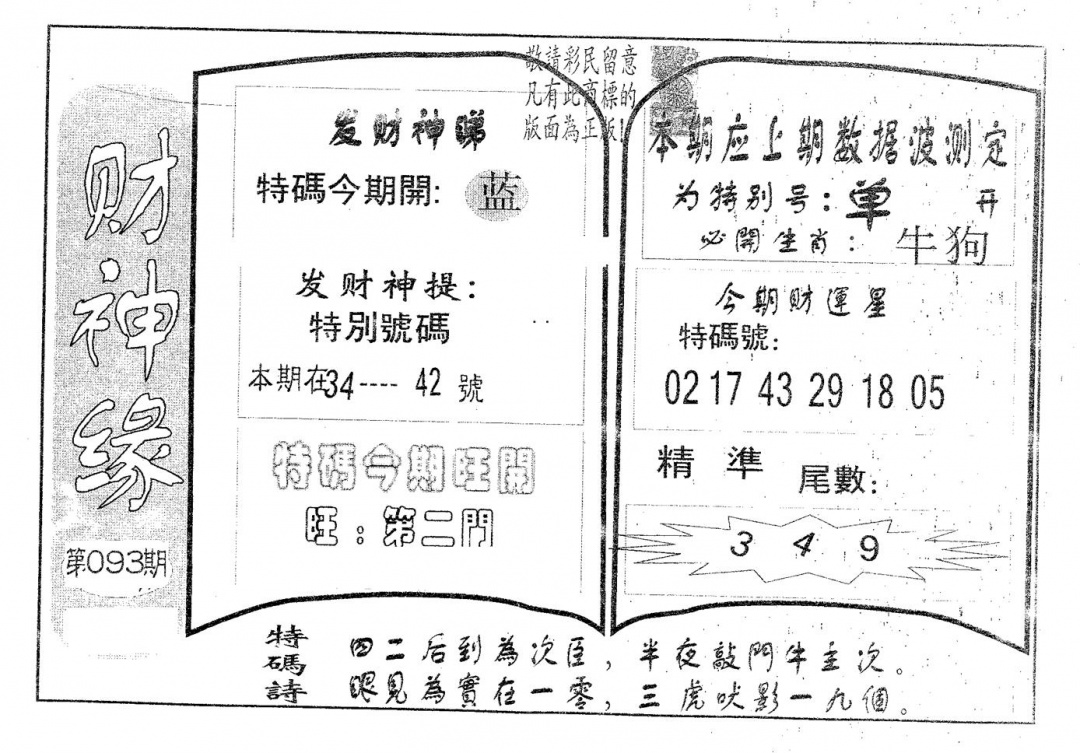 财神缘
第093期
敬請彩民留意
凡有此商標的
版面為正版!
发财神睇
特碼今期開: 蓝
发财神提:
特別號碼
本期在34---- 42 號
特碼今期旺開
旺:第二門
本期应上期数据波测定
为特别号:单 开
必開生肖: 牛狗
今期財運星
特碼號:
02 17 43 29 18 05
精準 尾數:
3 4 9
特碼詩
四二后到為次臣,半夜敲門牛主次。
眼見為實在一零,三虎吠影一九個。